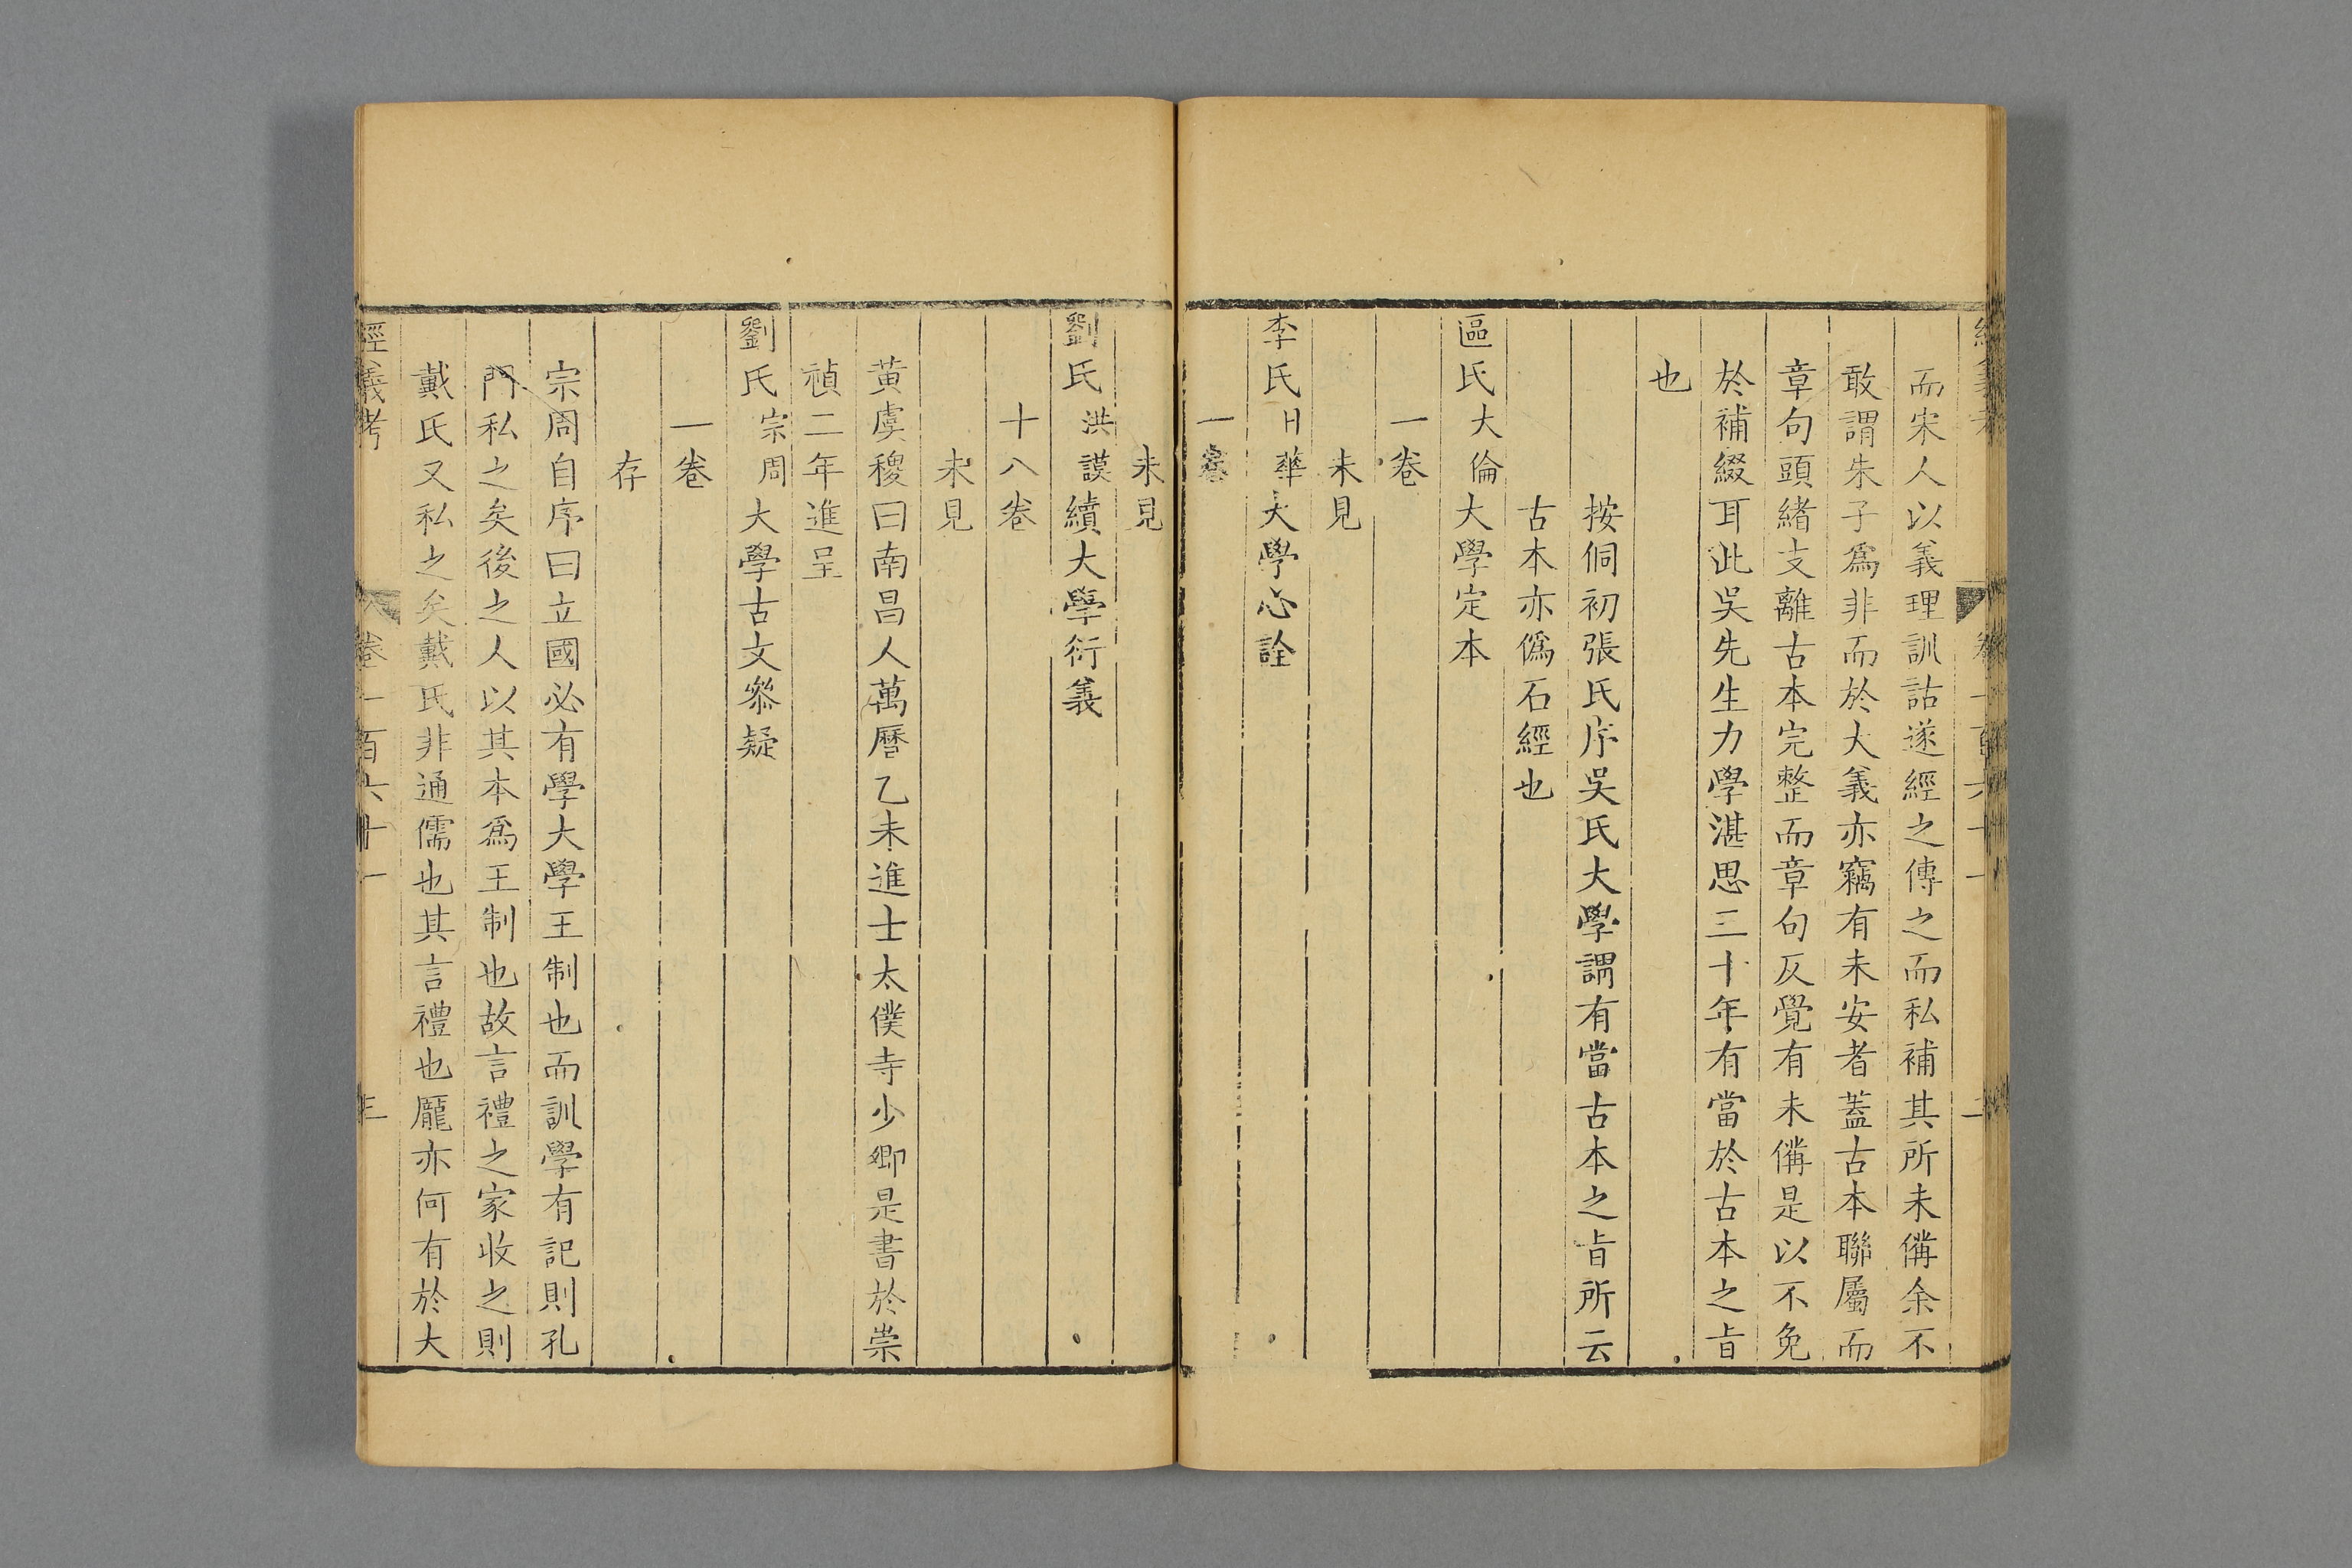 而宋人以義理訓詁遂經之傳之而私補其所未備余不
敢謂朱子爲非而於大義亦竊有未安者蓋古本聯屬而
章句頭緒支離古本完整而章句仄覺有未備是以不免
於補綴耳此吳先生力學湛思三十年有當於古本之㫖
也
按侗初張氏序吳氏大學謂有當古本之㫖所云
古本亦僞石經也
區氏大倫大學定本
一卷
未見
李氏日華大學心詮
一卷
未見
劉氏洪謨續大學衍義
十八卷
未見
黃虞稷曰南昌人萬曆乙未進士太僕寺少卿是書於崇
禎二年進呈
劉氏宗周大學古文叅疑
一卷
存
宗周自序曰立國必有學大學王制也而訓學有記則孔
門私之矣後之人以其本爲王制也故言禮之家收之則
戴氏又私之矣戴氏非通儒也其言禮也龎亦何有於大
經義考 卷一百六十一 三